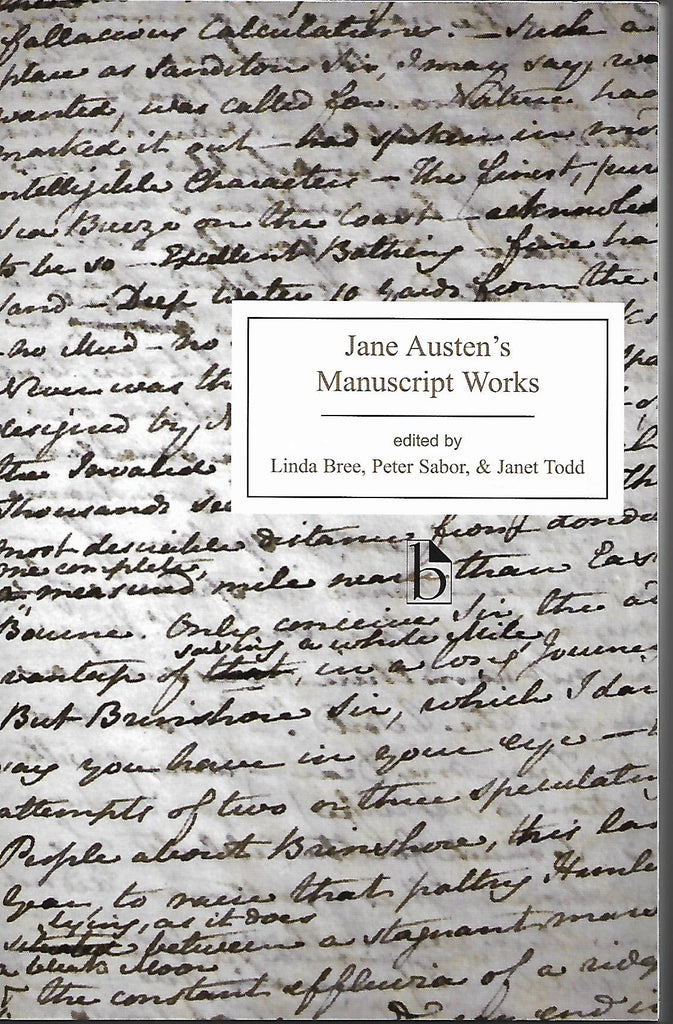 fallacious Calculations. — Such a
place as Sanditon Sir, I may say, wa
wanted, was called for. — Nature had
marked it out — had spoken in mos
intelligible Characters — The finest, pure
Sea Breeze on the Coast — acknowled
to be so — Excellent Bathing — fine ha
Sand — Deep Water 10 yards from the
no Mud — no
Never was th
designed by N
the Invalid
Thousands se
most desireble distance from London
one complete,
measured mile nearer than East
Bourne. Only conceive Sir, the ad
saving a whole Mile,
vantage of that, in a long Journey
But Brinshore Sir, which I dar
say you have in your eye —
attempts of two or three speculatin
People about Brinshore, this las
Year, to raise that paltry Hamle
lying, as it does
between a stagnant mar
a bleak Moor
& the constant effluvia of a ridge
Jane Austen's
Manuscript Works
edited by
Linda Bree, Peter Sabor, & Janet Todd
b